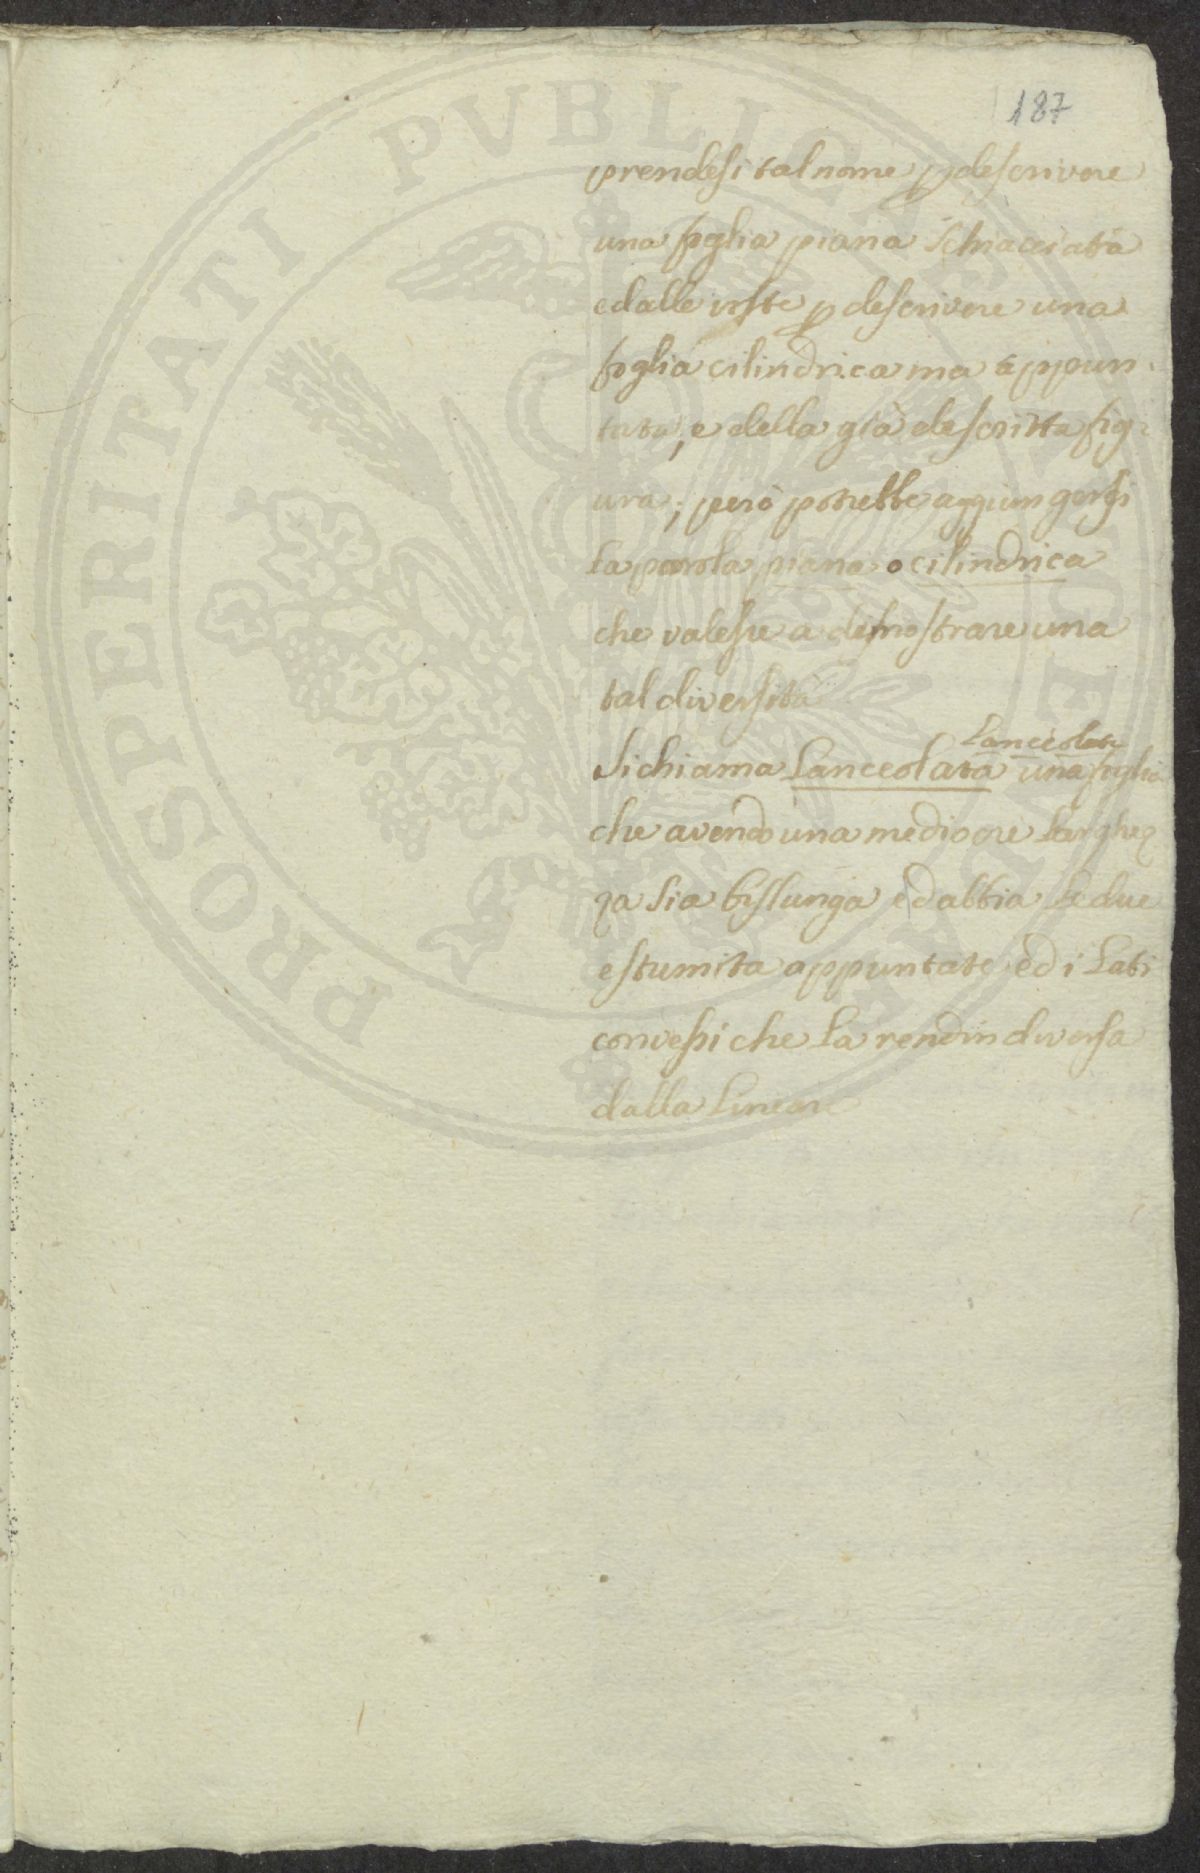 187
prendesi tal nome p descrivere
una foglia piana schiacciata
e dalle volte p descrivere una
foglia cilindrica ma appun-
tata, e della già descritta fig-
ura; però potrebbe aggiungersi
la parola piana o cilindrica
che valesse a dimostrare una
tal diversità
Lanceolata
Si chiama Lanceolata una foglia
che avendo una mediocre larghez
za sia bislunga ed abbia le due
estumita appuntate ed i lati
convessi che la rendin diversa
dalla Lineare
PROSPERITATI PVBLICAE